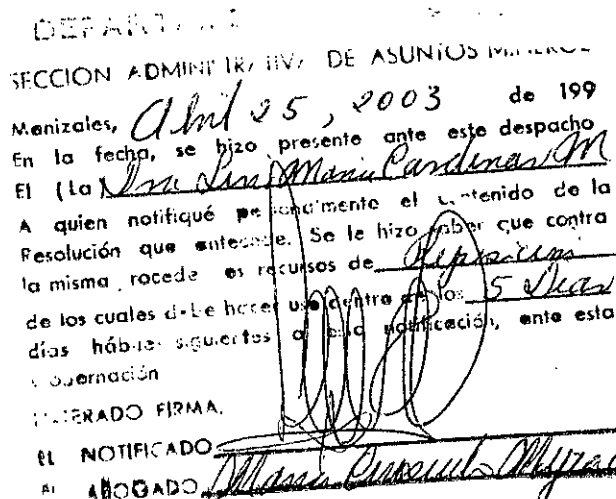 SECCION ADMINISTRATIVA DE ASUNTOS MINEROS
Manizales, Abril 25, 2003 de 199
En la fecha, se hizo presente ante este despacho
El (La) Dra Maria Cardenas M
A quien notifiqué personalmente el contenido de la
Resolución que antecede. Se le hizo saber que contra
la misma procede los recursos de Reposición
de los cuales debe hacer uso dentro de los 5 Dias
días hábiles siguientes a esta notificación, ante esta
Gobernación
ENTERADO FIRMA.
EL NOTIFICADO
EL ABOGADO Maria